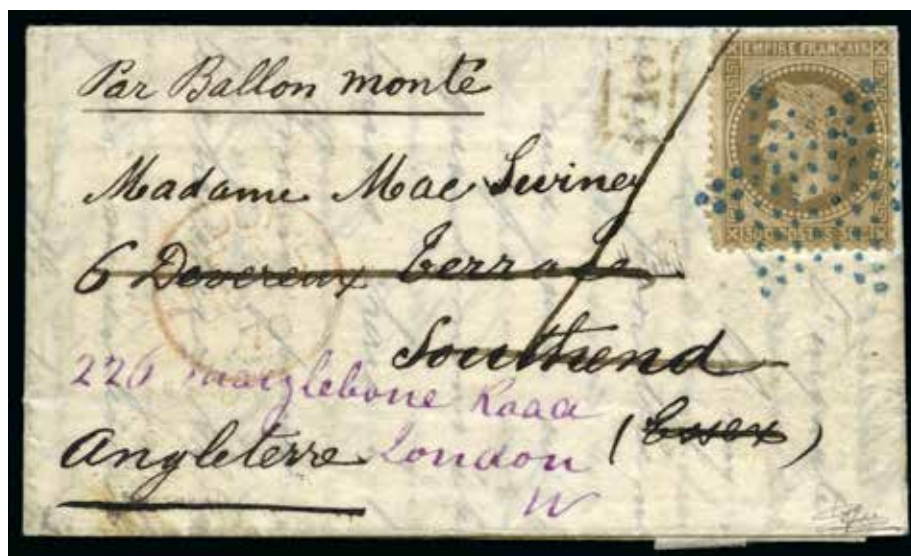 Par Ballon monté
EMPIRE FRANÇAIS
Madame Mac Swiney
6 Devereux Terrace
Southend
226 Marylebone Road
(Essex)
Angleterre London
W